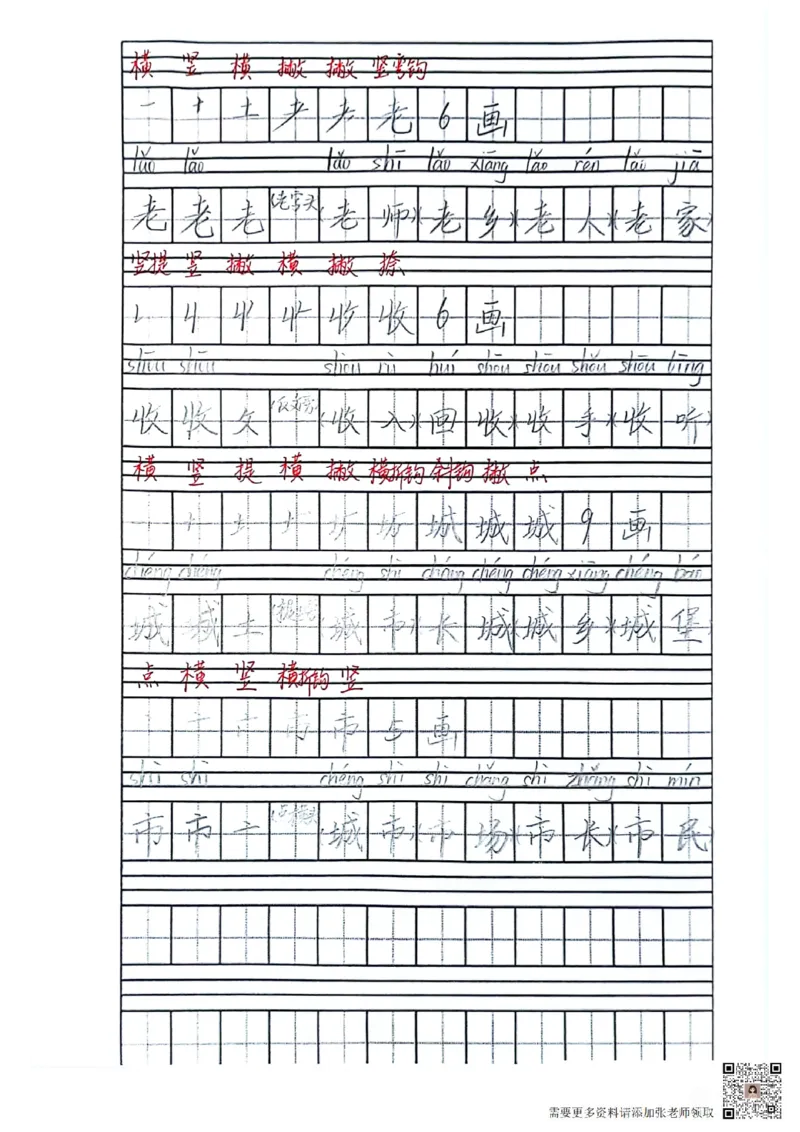 横 竖 横 撇 撇 竖弯钩
一 十 土 耂 老 老 6 画
lǎo lǎo lǎo shī lǎo xiāng lǎo rén lǎo jiā
老 老 老 (老字头) (老师)(老乡)(老人)(老家)
竖提 竖 撇 横 撇 捺
收 收 6 画
shōu shōu shōu rù huí shōu shōu shǒu shōu tīng
收 收 攵 (收入)(回收)(收手)(收听)
横 竖 提 横 撇 横折钩 斜钩 撇 点
城 城 城 9 画
chéng chéng chéng shì cháng chéng chéng xiāng chéng bǎo
城 城 土 (城市)(长城)(城乡)(城堡)
点 横 竖 横折钩 竖
丶 亠 市 5 画
shì shì chéng shì shì chǎng shì zhǎng shì mín
市 市 亠 (城市)(市场)(市长)(市民)
需要更多资料请添加张老师领取